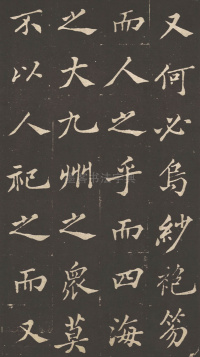 又何必烏紗袍笏
而人之乎而四海
之大九州之衆莫
不以人祀之而又